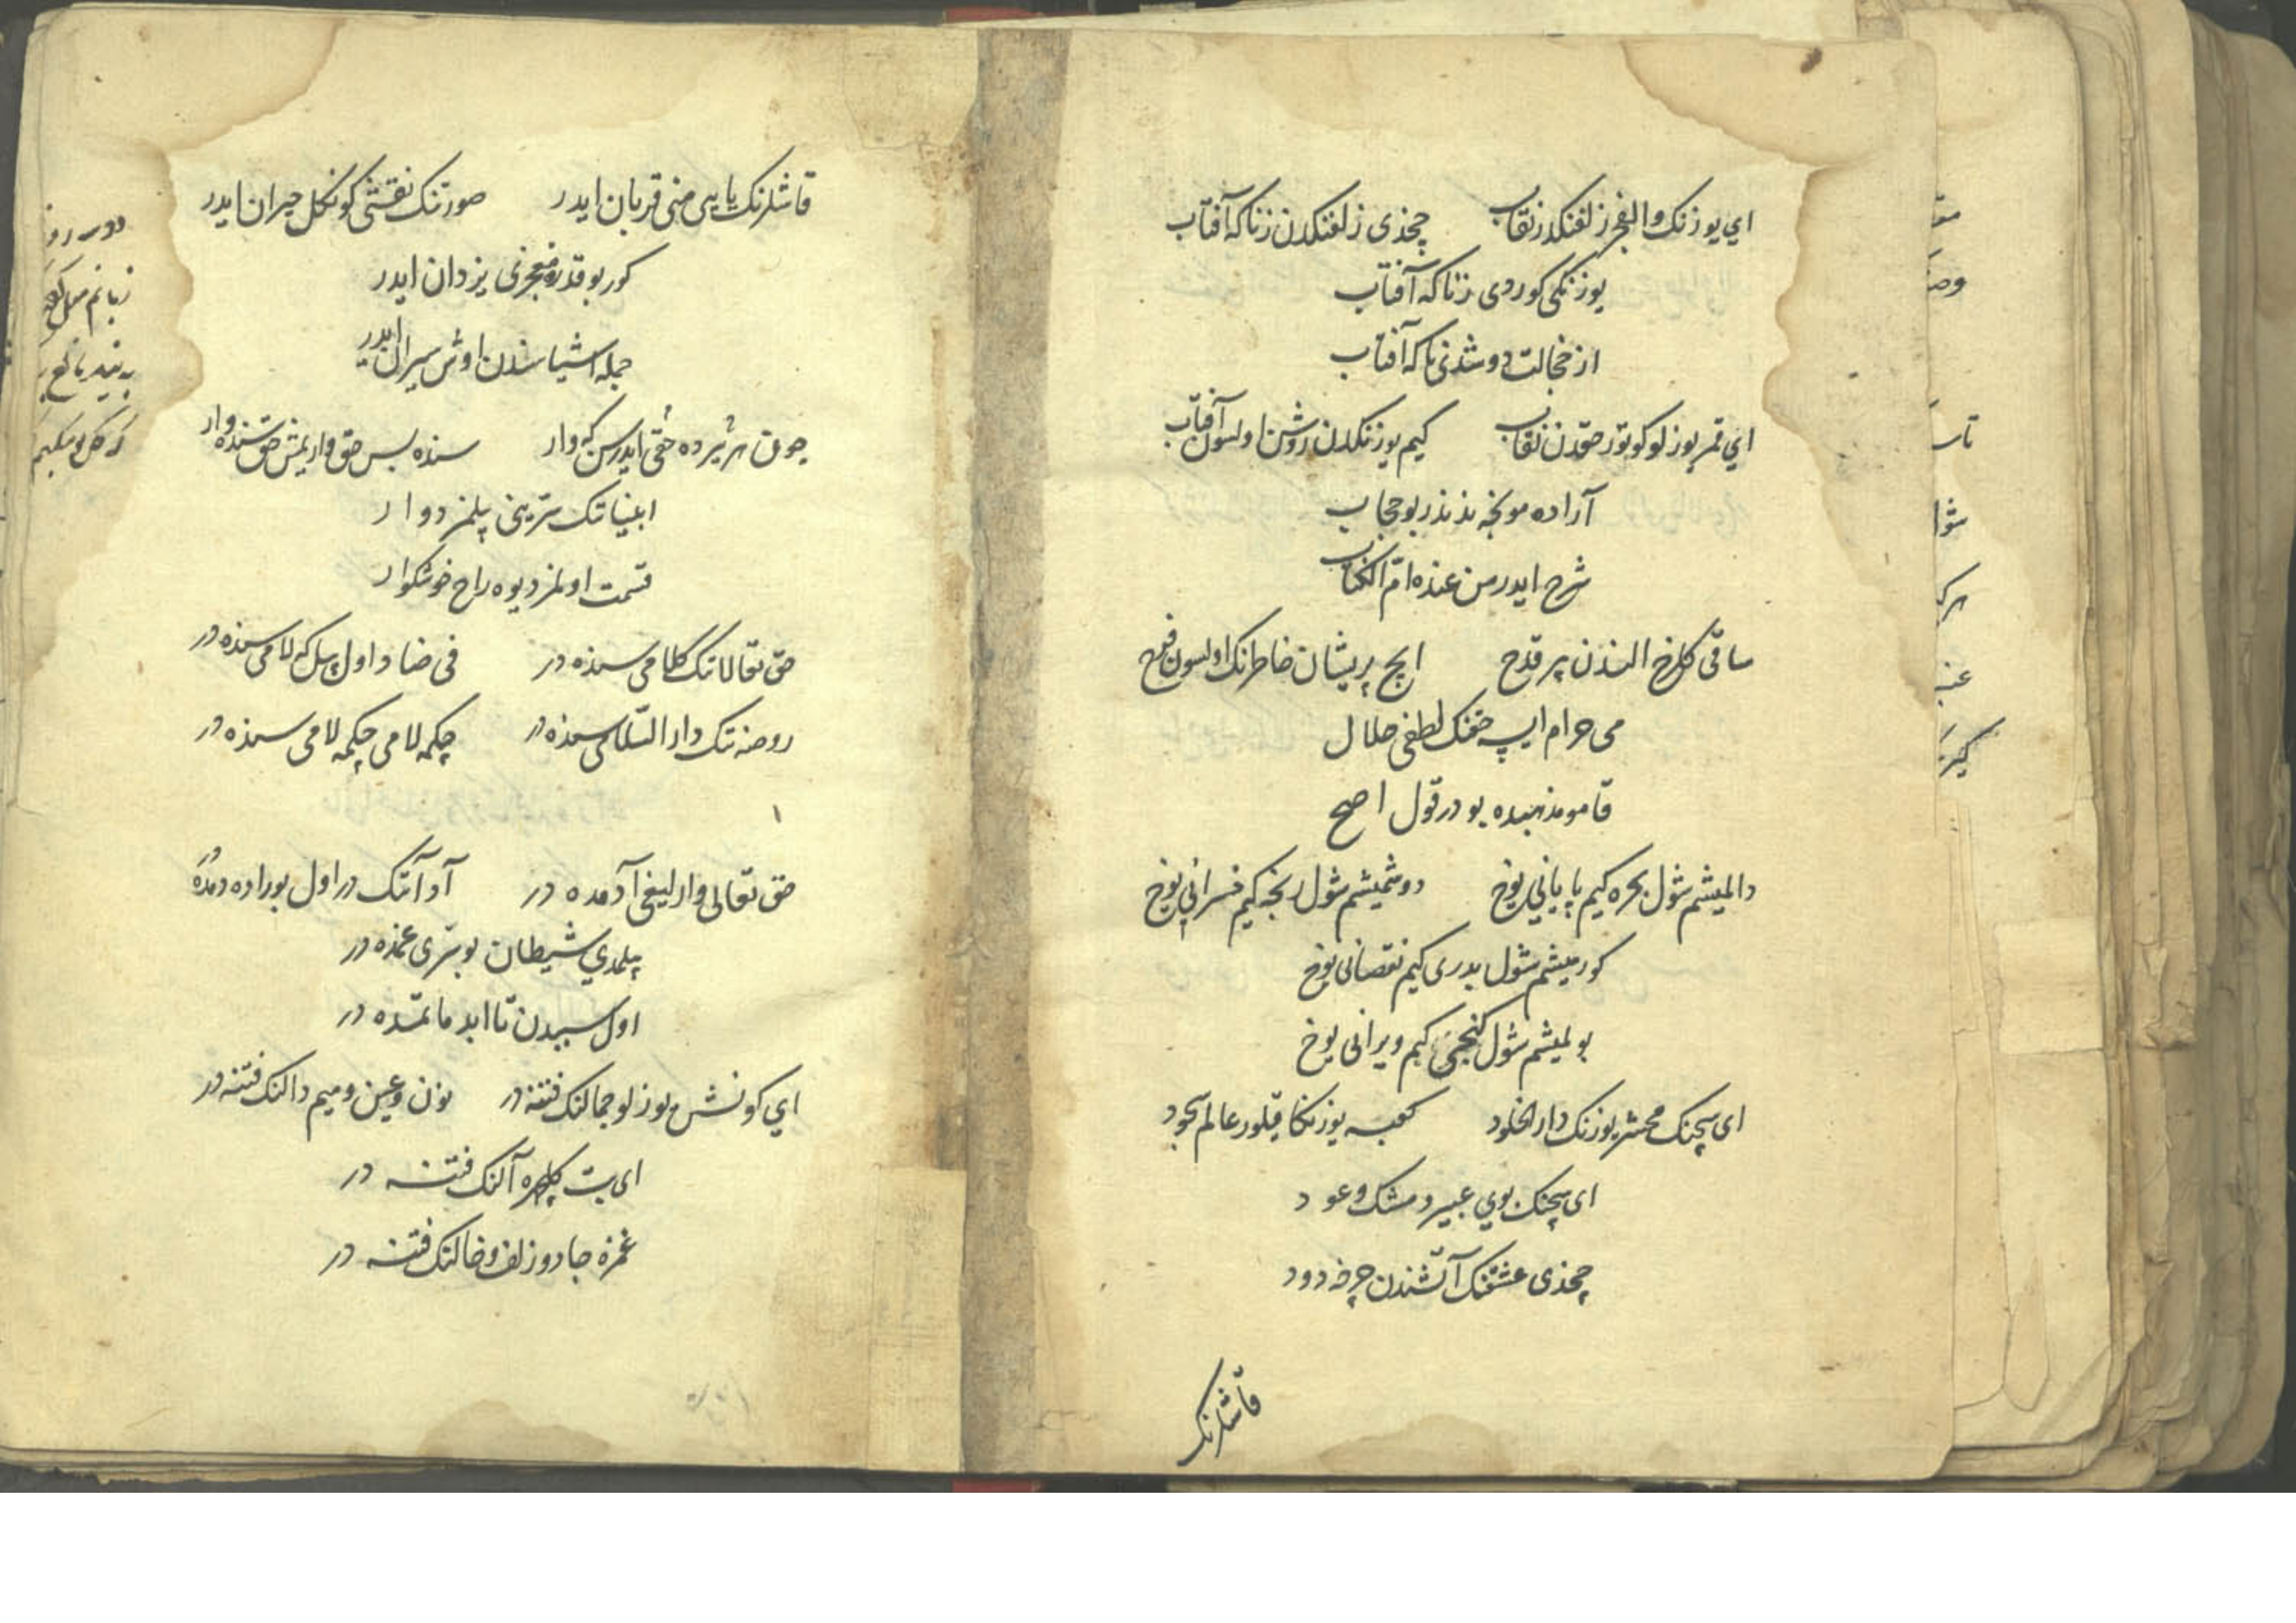 اي يوزنك والفجر زلفنكدر نقاب چخدی زلفنكدن زناكه آفتاب
يوزنكی كوردی زناكه آفتاب
از خجالت دوشدی ناكه آفتاب
اي قمر يوزلو كوتور حقدن نقاب كيم يوزنكدن روشن اولسون آفتاب
آراده مونجه ندندر بو حجاب
شرح ايدر من عنده امّ الكتاب
ساقی كلرخ الندن بر قدح ايچ پريشان خاطرنك اولسون فرح
می حرام ايسه حقنك لطفی حلال
قامو مذهبده بودر قول اصح
دالميشم شول بحره كيم پاياني يوخ دوشميشم شول رنجه كيم خسراني يوخ
كورميشم شول بدری كيم نقصانی يوخ
بولميشم شول كنجی كيم ويرانی يوخ
ای سچنك محشر يوزنك دار الخلود كعبه يوزنكا قيلور عالم سجود
ای سچنك بوي عبير و مشك و عود
چخدی عشقنك آتشندن چرخه دود
قاشلرنك
قاشلرنك يايی منی قربان ايدر صورتنك نقشی كونكل حيران ايدر
كور بو قدرو معجزی يزدان ايدر
جمله اشيا سندن اوش سيران ايدر
چون هر يرده حقی ايدرسن كه وار سنده بس حق واريمش حق سنده وار
ابنياتك سرّينی بيلمز دوار
قسمت اولمز ديوه راح خوشكوار
حق تعالانك كلامی سنده در فی ضاد اول بيل كه لامی سنده در
روضه نك دار السّلامی سنده در چكمه لامی چكمه لامی سنده در
حق تعالی وارليغی آدمده در آد آنك در اول بوراده دمده در
بيلمدي شيطان بو سرّی غمده در
اول سبيدن تا ابد ماتمده در
اي كونش يوزلو جمالنك فتنه در نون و عين و ميم و دالنك فتنه در
ای بت كلچهره آلنك فتنه در
غمزه جادو زلف و خالنك فتنه در